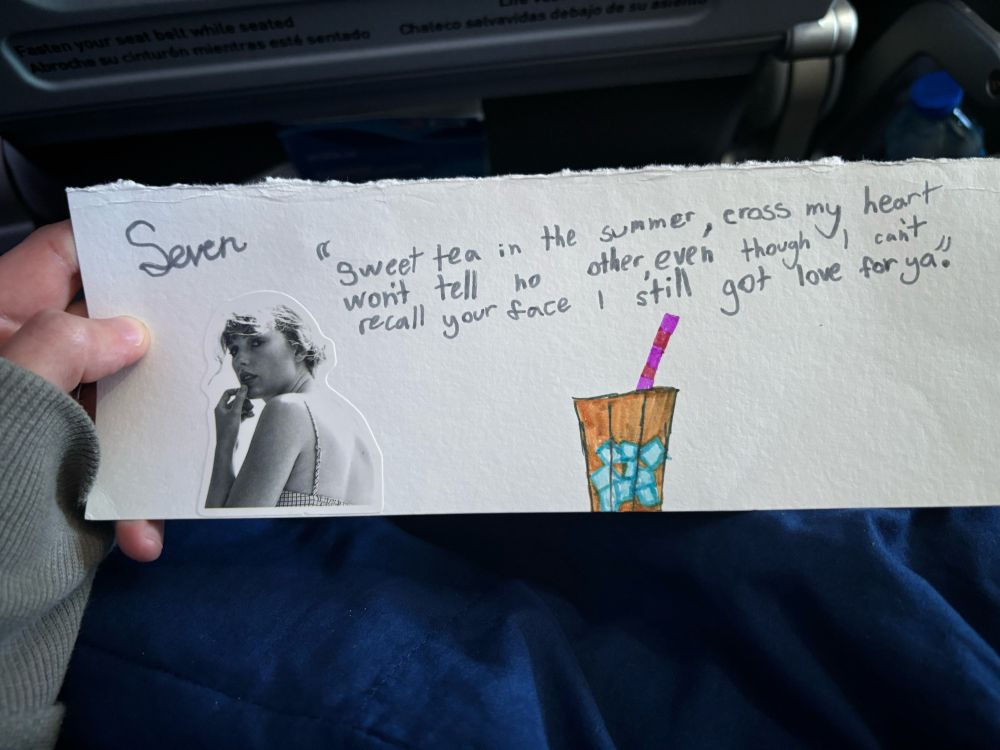 Fasten your seat belt while seated
Abroche su cinturón mientras esté sentado
Chaleco salvavidas debajo de su asiento
Seven
"sweet tea in the summer, cross my heart
won't tell no other, even though I can't
recall your face I still got love for ya."